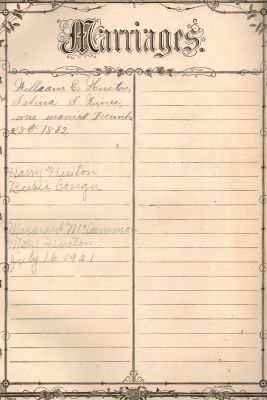 Marriages.
William E. Huston,
Sabina S.
was married December
28th 1882
Harry Huston
Bessie Conger
Maynard McCammon
Mary Huston
July 16 1921